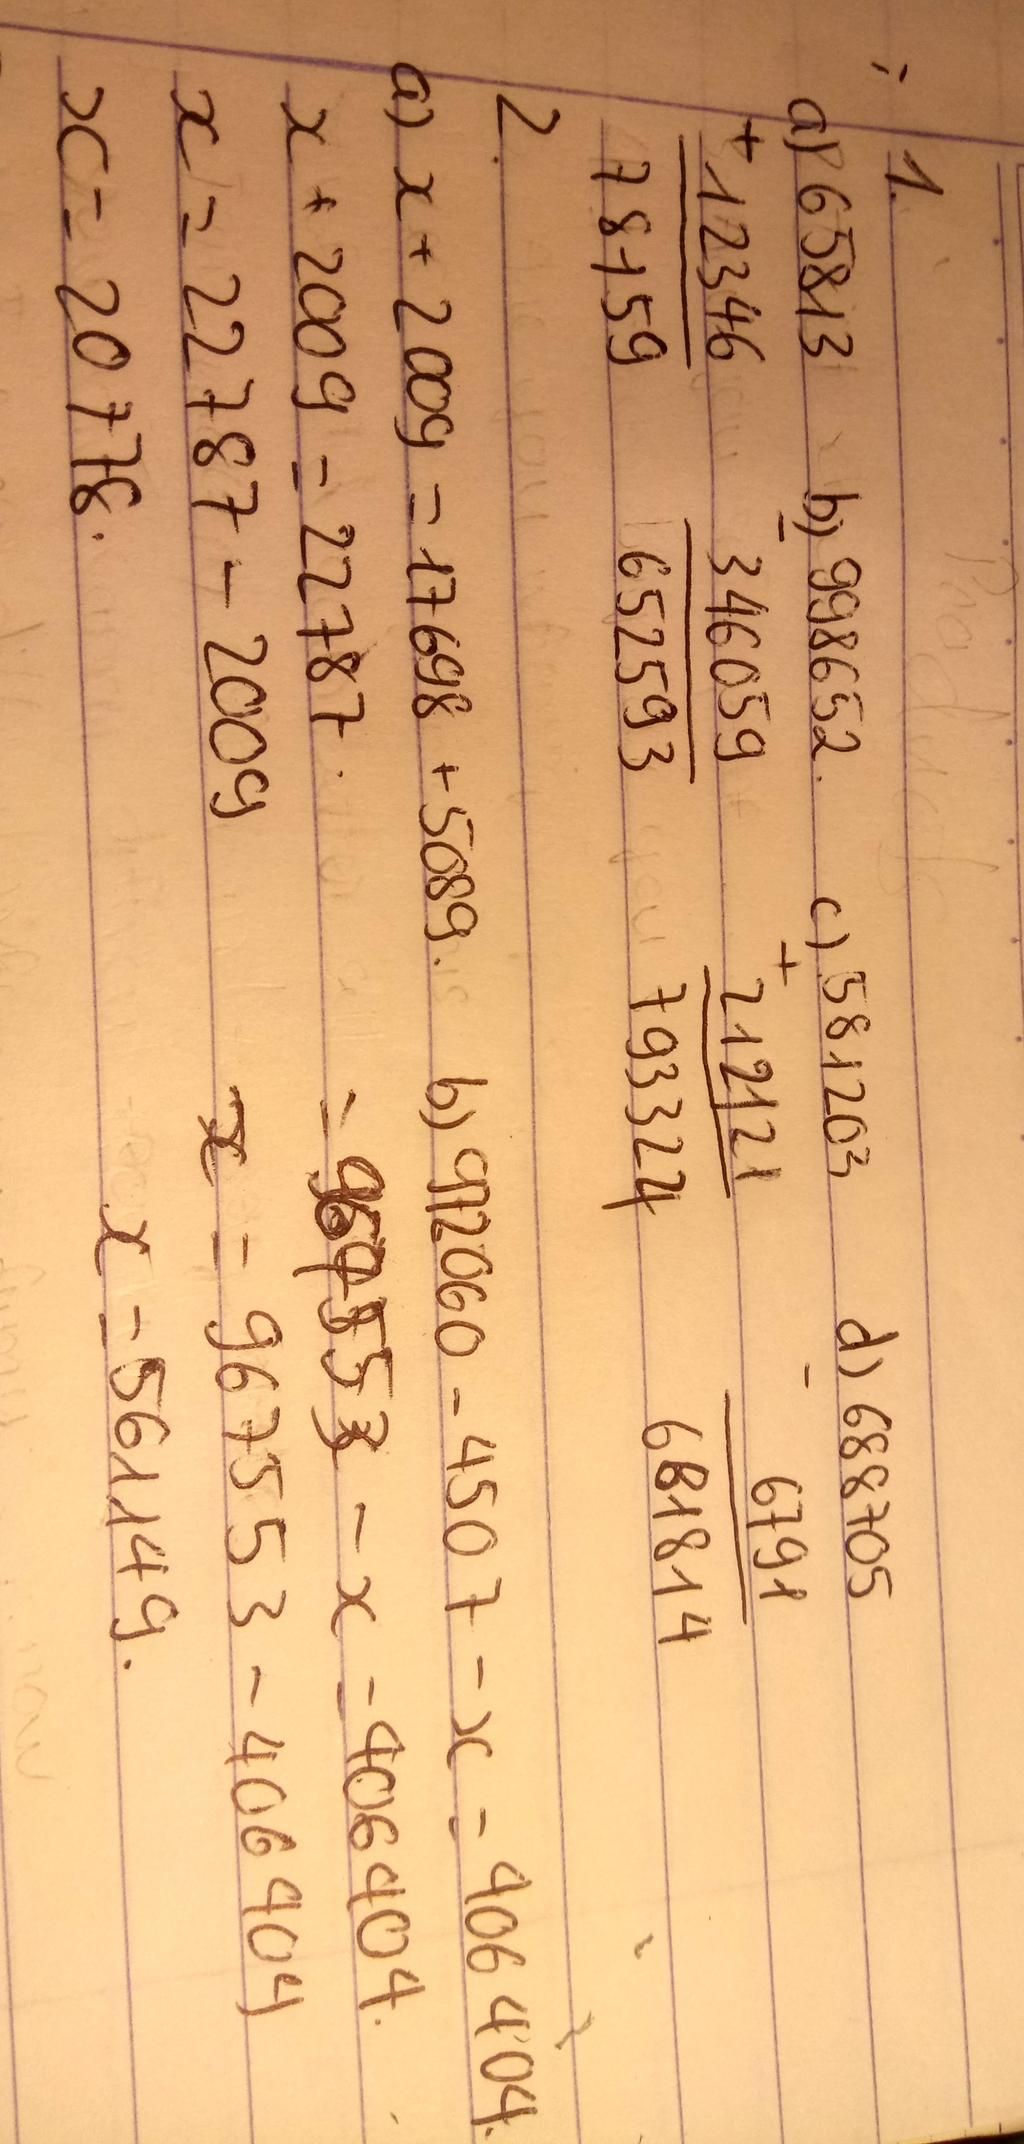 1.
a) 65813 b) 998652. c) 581203 d) 688705
+ 12346 - 346059 + 212121 - 6791
78159 652593 793324 681814
2.
a) x + 2009 = 17698 + 5089. b) 972060 - 4507 - x = 406404.
x + 2009 = 22787. = 967553 - x = 406404.
x = 22787 - 2009 x = 967553 - 406404
x = 20778. x = 561149.